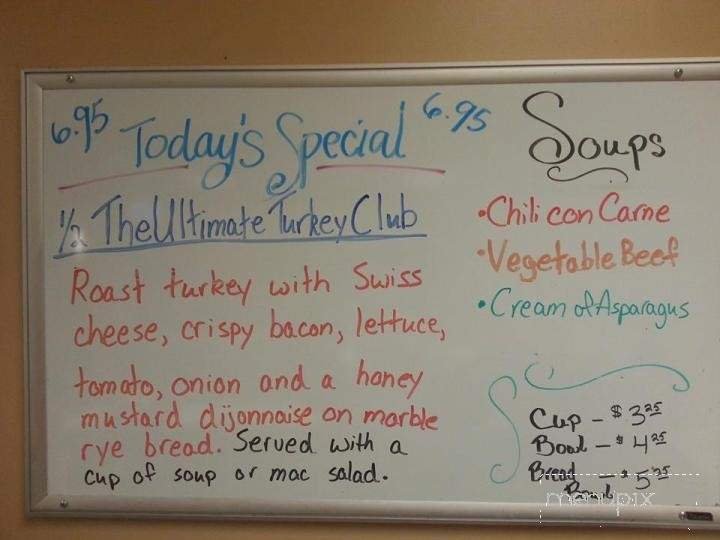 6.95 Today's Special 6.95
1/2 The Ultimate Turkey Club
Roast turkey with Swiss
cheese, crispy bacon, lettuce,
tomato, onion and a honey
mustard dijonnaise on marble
rye bread. Served with a
cup of soup or mac salad.
Soups
• Chili con Carne
• Vegetable Beef
• Cream of Asparagus
Cup - $3.25
Bowl - $4.25
Bread Bowl - $5.25
menupix